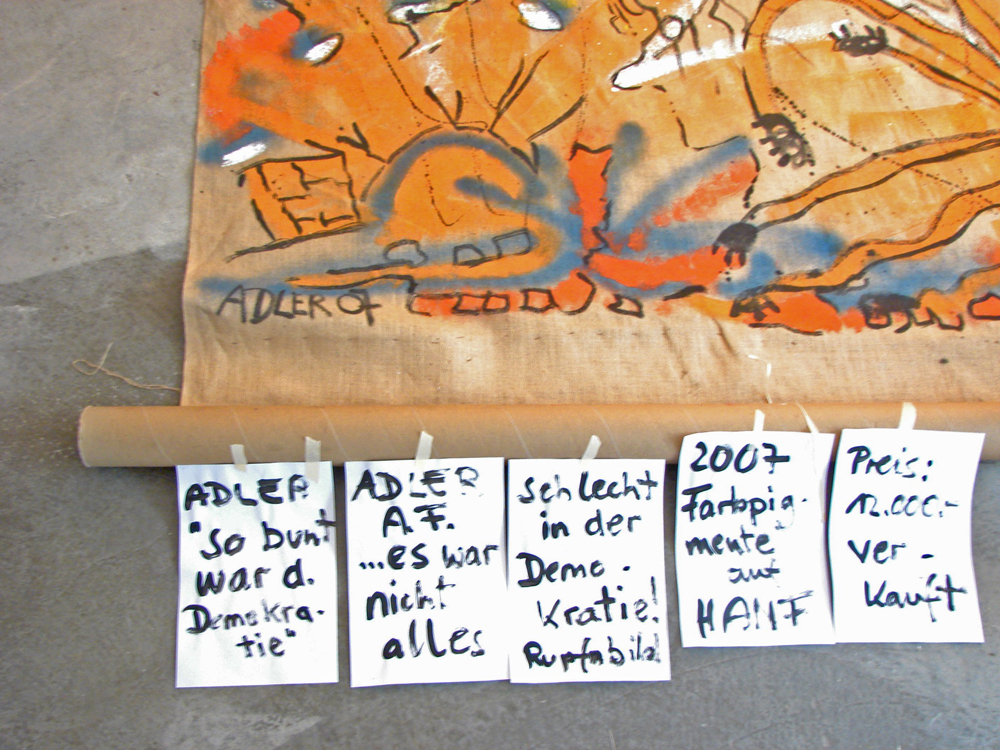 ADLER 07
ADLER
"so bunt
war d.
Demokra-
tie"
ADLER
A.F.
...es war
nicht
alles
schlecht
in der
Demo-
kratie!
Rupfnbild
2007
Farbpig-
mente"
auf
HANF
Preis:
12.000.-
ver-
kauft